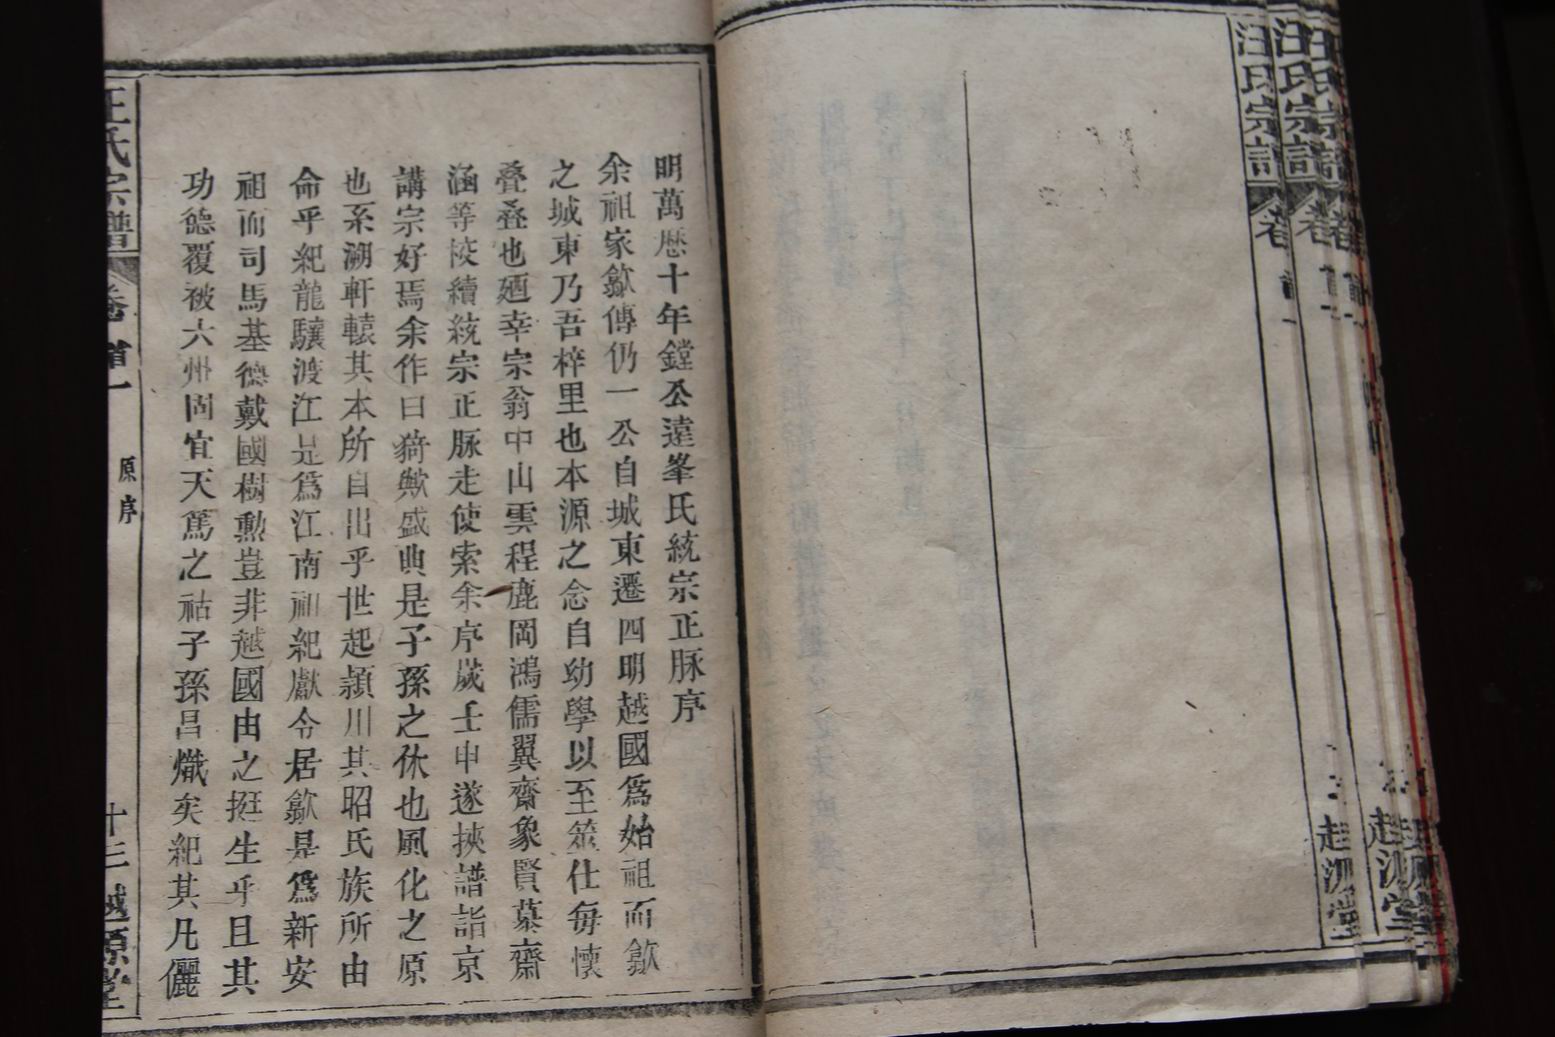 明萬歷十年鏜公遠峯氏統宗正脉序
余祖家歙傳仍一公自城東遷四明越國爲始祖而歙
之城東乃吾梓里也本源之念自幼學以至筮仕每懷
叠叠也廼幸宗翁中山雲程鹿岡鴻儒翼齋象賢慕齋
涵等校續統宗正脉走使索余序歲壬申遂挾譜詣京
講宗好焉余作曰猗歟盛典是子孫之休也風化之原
也系溯軒轅其本所自出乎世起潁川其昭氏族所由
命乎紀龍驤渡江是爲江南祖紀獻令居歙是爲新安
祖而司馬基德戴國樹勲豈非越國由之挺生乎且其
功德覆被六州固宜天篤之祜子孫昌熾矣紀其凡儷
汪氏宗譜 卷首一 原序 十三 越源堂
汪氏宗譜 卷
汪氏宗譜 卷首一